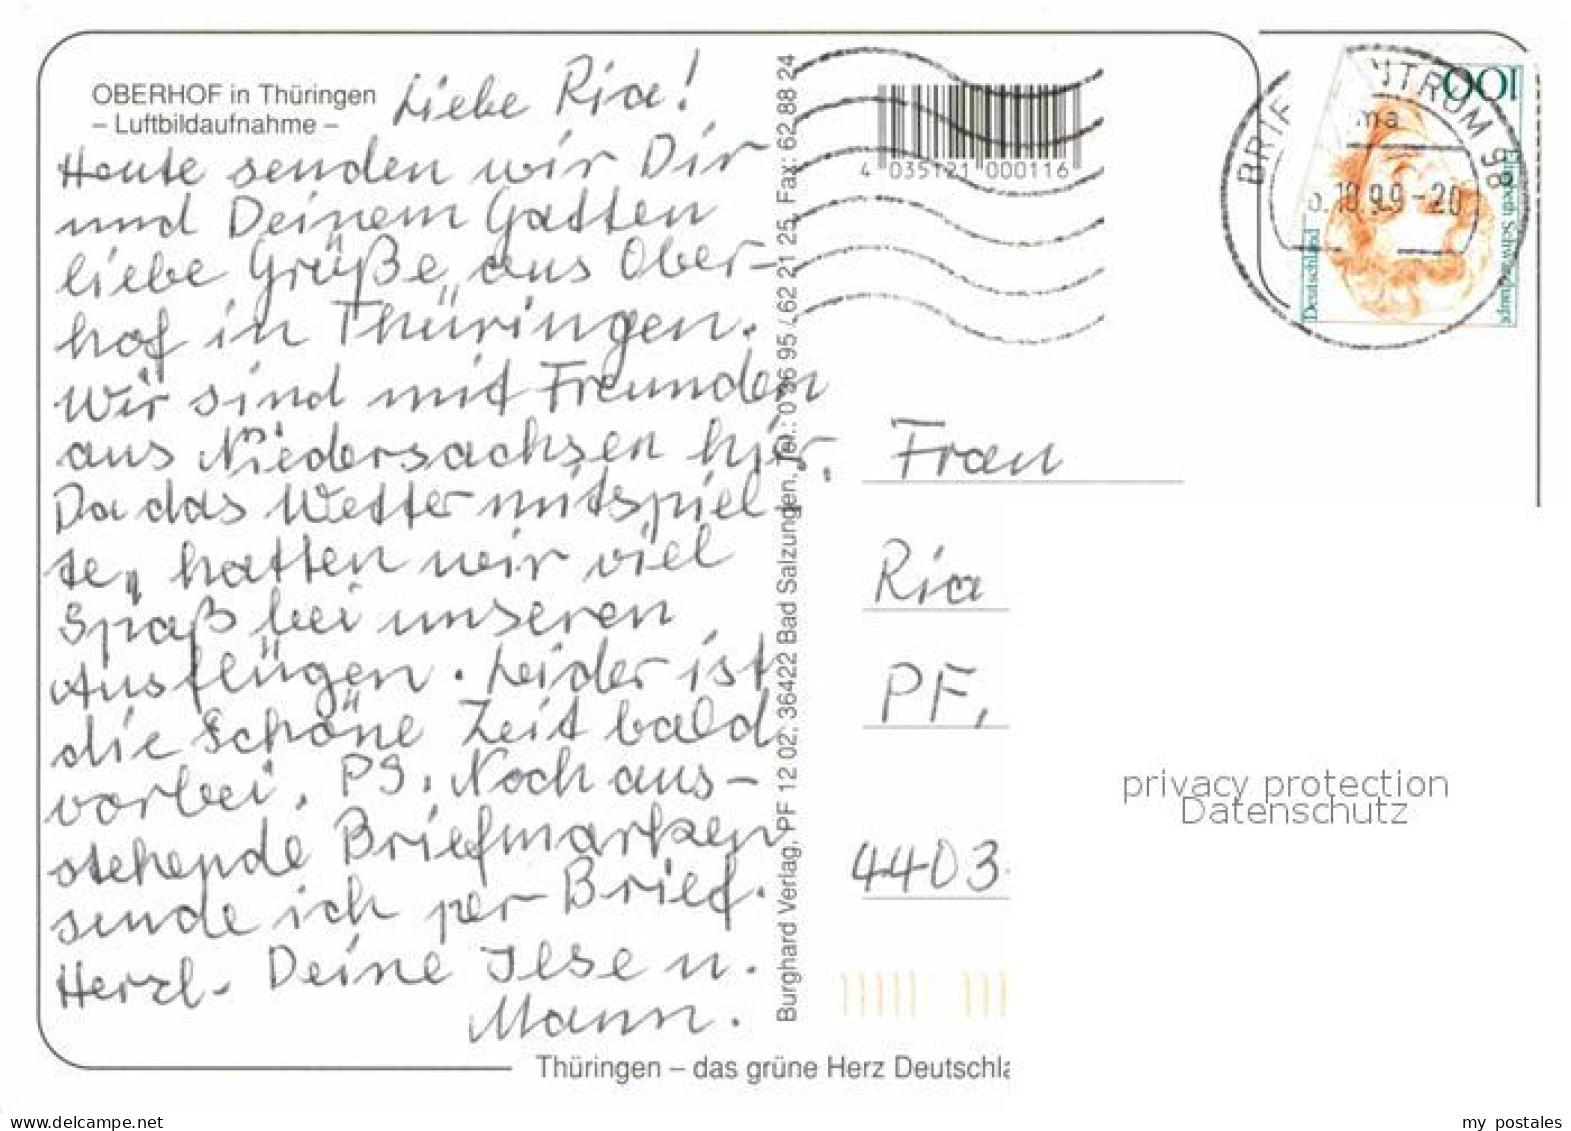 OBERHOF in Thüringen
– Luftbildaufnahme –
Liebe Ria!
Heute senden wir Dir
und Deinem Gatten
liebe Grüße aus Ober-
hof in Thüringen.
Wir sind mit Freunden
aus Niedersachsen hier.
Da das Wetter mitspiel-
te, hatten wir viel
Spaß bei unseren
Ausflügen. Leider ist
die schöne Zeit bald
vorbei. PS. Noch aus-
stehende Briefmarken
sende ich per Brief.
Herzl. Deine Ilse u.
Mann.
Burghard Verlag, PF 12 02, 36422 Bad Salzungen, Tel.: 0 36 95 / 62 21 25, Fax: 62 88 24
4 035121 000116
BRIEF NTRUM 98
.10.99-20
100
Deutschland
Elisabeth Schwarzhaupt
Frau
Ria
PF,
4403
privacy protection
Datenschutz
Thüringen – das grüne Herz Deutschla
delcampe.net
my_postales